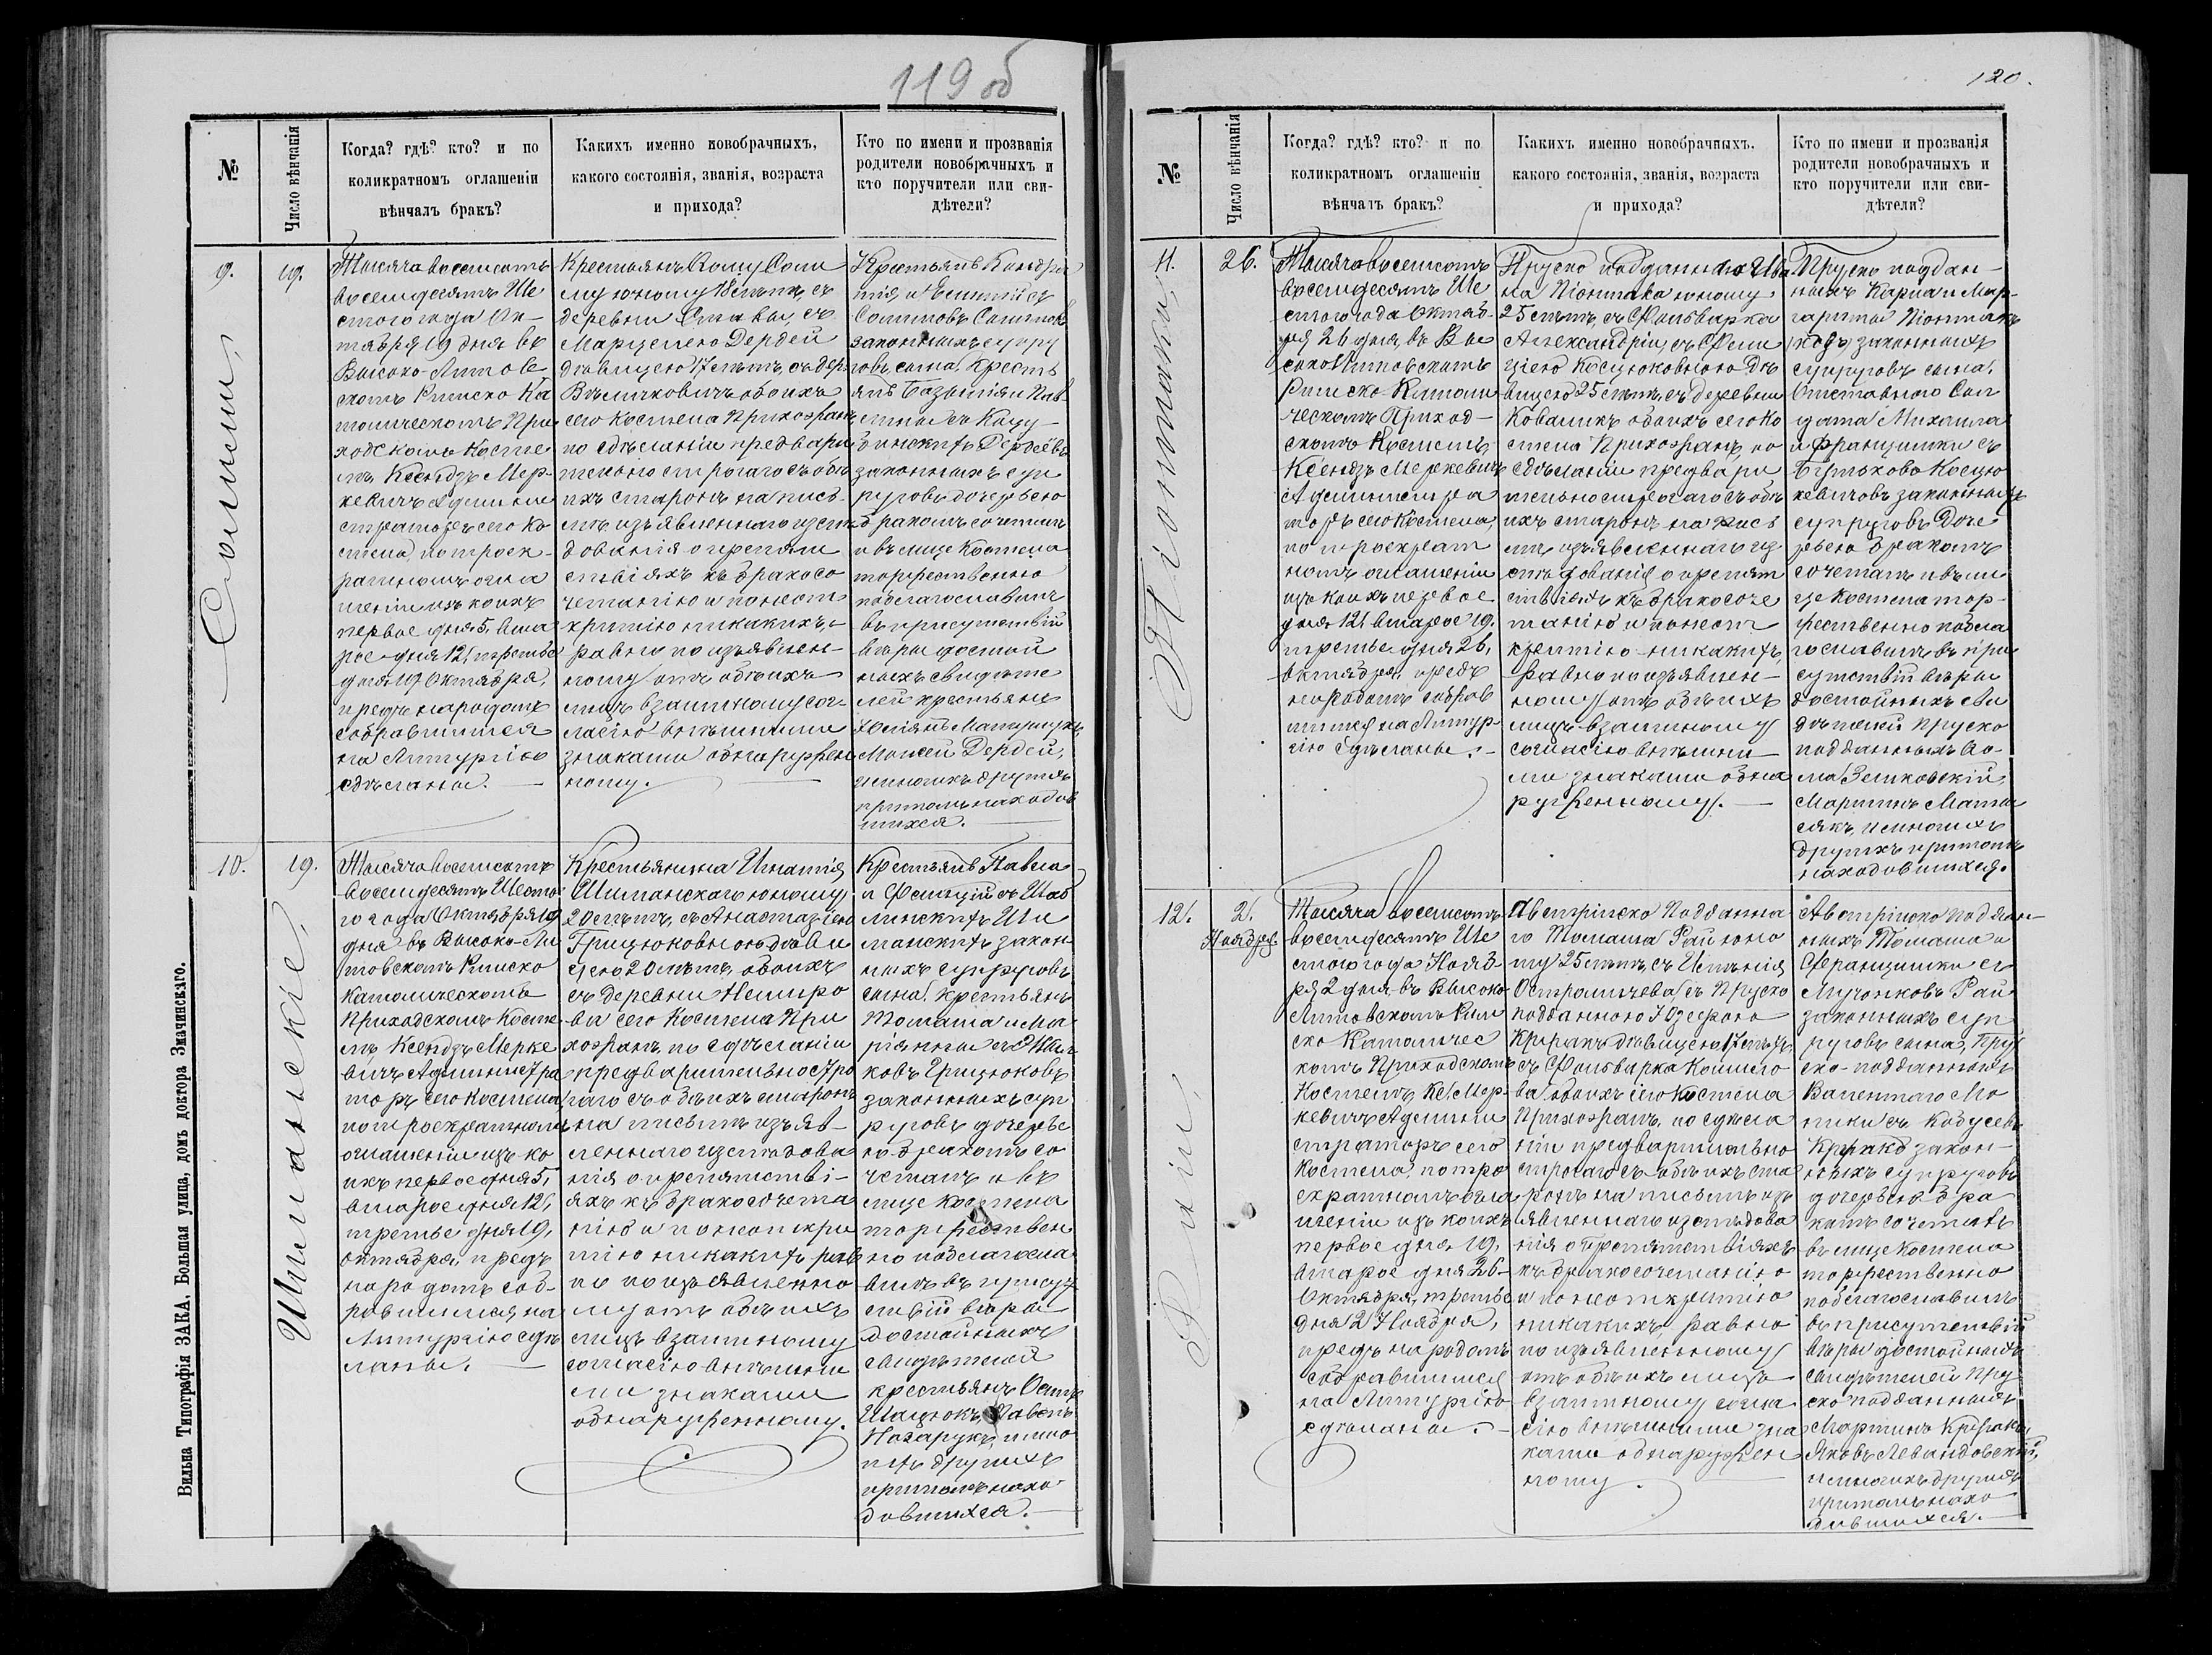 119 об
№
Число вѣнчанія
Когда? гдѣ? кто? и по
коликратномъ оглашеніи
вѣнчалъ бракъ?
Какихъ именно новобрачныхъ,
какого состоянія, званія, возраста
и прихода?
Кто по имени и прозванія
родители новобрачныхъ и
кто поручители или сви-
дѣтели?
9.
19.
Тысяча восемсотъ
восемдесятъ Ше
стого года Ок-
тября 19 дня въ
Высоко-Литов
скомъ Римско Ка
толическомъ При
ходскомъ Косте
лѣ Ксендзъ Мер-
кевичъ Админи
страторъ сего Ко
стела, по троек-
ратномъ огла
шеніи изъ коихъ
первое дня 5, вто
рое дня 12, третье
дня 19 Октября,
предъ народомъ
собравшимся
на Литургію
сдѣланы.
деревни Ставы, съ
Марцелею Дердей
дѣвицею 17 лѣтъ, съ дер
обоихъ
сего Костела Прихожанъ
по сдѣланіи предвари
тельно строгаго съ обѣ
ихъ сторонъ на пись-
мѣ изъявленнаго изслѣ
дованія о препят
ствіяхъ къ бракосо
четанію и по неот
крытію никакихъ,
равно по изъявлен-
ному отъ обѣихъ
лицъ взаимному сог-
ласію внѣшними
знаками обнаружен
ному.
законныхъ супру
говъ сына, Кресть
янъ
законныхъ суп
руговъ дочерью
бракомъ сочеталъ
и въ лице Костела
торжественно
поблагословилъ
въ присутствіи
вѣры достой
ныхъ свидѣте
лей крестьянъ
Моисей Дердей,
и многихъ другихъ
притомъ находив
шихся.
10.
19.
Шиманскіе
Тысяча восемсотъ
восемдесятъ Шесто
го года Октября 19
дня въ Высоко-Ли
товскомъ Римско
Католическомъ
Приходскомъ Косте
лѣ Ксендзъ Мерке
вичъ Администра
торъ сего Костела
по троекратномъ
оглашеніи изъ ко
ихъ первое дня 5,
второе дня 12,
третье дня 19,
Октября, предъ
народомъ соб-
равшимся на
Литургію сдѣ
ланы.
Крестьянина Игнатія
Шиманскаго юному
20 лѣтъ, съ Анастазіею
Грицюковною дѣви
цею 20 лѣтъ, обоихъ
съ деревни Немиро
ва сего Костела При
хожанъ, по сдѣланіи
предварительно стро
гаго съ обѣихъ сторонъ
на письмѣ изъяв-
леннаго изслѣдова
нія о препятстві-
яхъ къ бракосочета
нію и по неоткры
тію никакихъ, рав
но по изъявленно
му отъ обѣихъ
лицъ взаимному
согласію внѣшни
ми знаками
обнаруженному.
Крестьянъ Павла
манскихъ закон
ныхъ супруговъ
сына, крестьянъ
Томаша и Ма
ріянны
ковъ Грицюковъ
законныхъ суп
руговъ дочерью
бракомъ со
четалъ и въ
лице Костела
торжествен
но поблагосла
вилъ въ присут
ствіи вѣры
достойныхъ
свидѣтелей
крестьянъ
Назарукъ, и мно
гихъ другихъ
притомъ нахо
дившихся.
Вильна Типографія ЗАКА, Большая улица, домъ доктора Змачинскаго.
120.
№
Число вѣнчанія
Когда? гдѣ? кто? и по
коликратномъ оглашеніи
вѣнчалъ бракъ?
Какихъ именно новобрачныхъ,
какого состоянія, званія, возраста
и прихода?
Кто по имени и прозванія
родители новобрачныхъ и
кто поручители или сви-
дѣтели?
11.
26.
Тысяча восемсотъ
восемдесятъ Ше
стого года Октяб-
ря 26 дня, въ Вы
соко Литовскомъ
Римско-Католи
ческомъ Приход-
скомъ Костелѣ
Ксендзъ Меркевичъ
Администра
торъ сего Костела,
по троекрат
номъ оглашеніи
изъ коихъ первое
дня 12, второе 19,
третье дня 26,
октября, предъ
народомъ собрав
шимся на Литур-
гію сдѣланы.
Пруско подданнаго Ива
на Піонтака юному
25 лѣтъ, съ Фольварка
Александріи, съ Фели
ціею Косцюковною дѣ
вицею 25 лѣтъ, съ деревни
обоихъ сего Ко
стела Прихожанъ, по
сдѣланіи предвари
тельно строгаго съ обѣ
ихъ сторонъ на пись
мѣ изъявленнаго из
слѣдованія о препят
ствіяхъ къ бракосоче
танію и по неот
крытію никакихъ,
равно по изъявлен-
ному отъ обѣихъ
лицъ взаимному
согласію внѣшни-
ми знаками обна
руженному.
Пруско поддан-
ныхъ Карла и Мар-
гариты Піонтакъ
законныхъ
супруговъ сына,
Отставного Сол
дата Михаила
и Францишки съ
законныхъ
супруговъ доче
рью бракомъ
сочеталъ и въ ли
це Костела тор-
жественно побла
гословилъ въ при
сутствіи вѣры
достойныхъ сви
дѣтелей Пруско
подданныхъ
Мартинъ
и многихъ
другихъ притомъ
находившихся.
12.
2.
Ноября
Тысяча восемсотъ
восемдесятъ Ше
стого года Нояб-
ря 2 дня въ Высоко
Литовскомъ Рим
ско Католичес
комъ Приходскомъ
Костелѣ Кс. Мер-
кевичъ Админи
страторъ сего
Костела, по трое
кратномъ огла
шеніи изъ коихъ
первое дня 19,
второе дня 26
Октября, третье
дня 2 Ноября,
предъ народомъ
собравшимся
на Литургію
сдѣланы.
Австрійско Подданна
го Томаша Рай юно
му 25 лѣтъ, съ Имѣнія
Остромечева, съ Пруско
подданною Юзефою
дѣвицею 17 лѣтъ,
съ Фольварка
обоихъ сего Костела
Прихожанъ, по сдѣла
ніи предварительно
строгаго съ обѣихъ сто
ронъ на письмѣ изъ
явленнаго изслѣдова
нія о препятствіяхъ
къ бракосочетанію
и по неоткрытію
никакихъ, равно
по изъявленному
отъ обѣихъ лицъ
взаимному согла
сію внѣшними зна
ками обнаружен
ному.
Австрійско поддан-
ныхъ Томаша и
Францишки съ
Рай
законныхъ суп
руговъ сына, Прус
ско-подданныхъ
закон-
ныхъ супруговъ
дочерью бра
комъ сочеталъ
въ лице Костела
торжественно
поблагословилъ
въ присутствіи
вѣры достойныхъ
свидѣтелей Пру
ско подданныхъ
Яковъ Левандовскій,
и многихъ другихъ
притомъ нахо
дившихся.